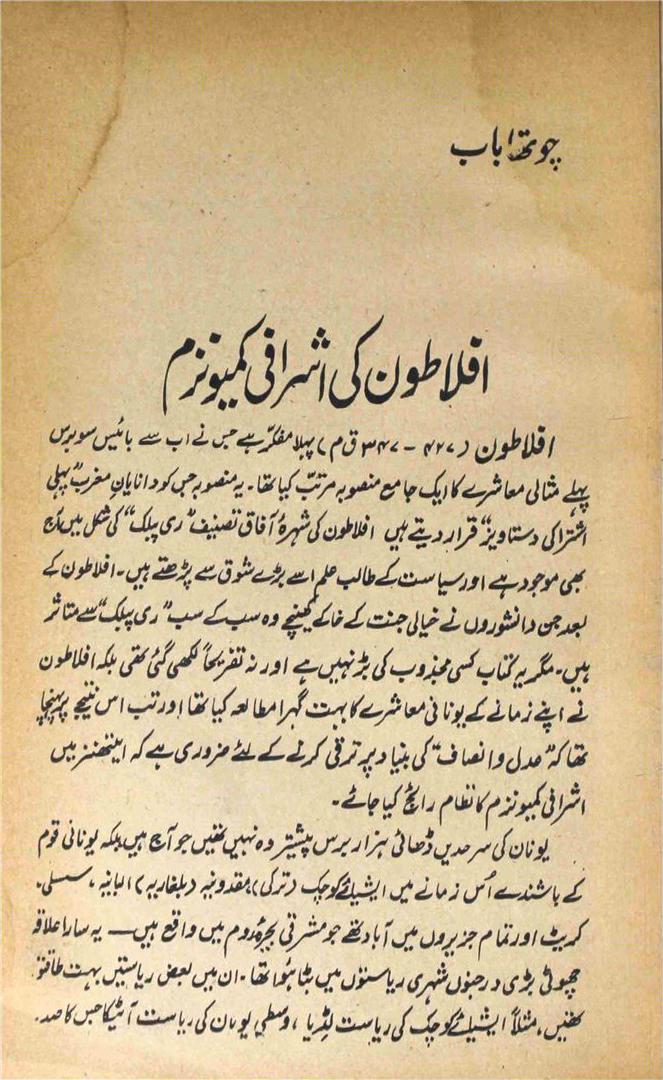 چوتھا باب
افلاطون کی اشرافی کمیونزم
افلاطون (۴۲۷ - ۳۴۷ ق م) پہلا مفکّر ہے جس نے اب سے بائیس سو برس
پہلے مثالی معاشرے کا ایک جامع منصوبہ مرتب کیا تھا۔ یہ منصوبہ جس کو دانایانِ مغرب ”پہلی
اشتراکی دستاویز“ قرار دیتے ہیں افلاطون کی شہرۂ آفاق تصنیف ”ری پبلک“ کی شکل میں آج
بھی موجود ہے اور سیاست کے طالب علم اسے بڑے شوق سے پڑھتے ہیں۔ افلاطون کے
بعد جن دانشوروں نے خیالی جنت کے خاکے کھینچے وہ سب کے سب ”ری پبلک“ سے متاثر
ہیں۔ مگر یہ کتاب کسی مجذوب کی بڑ نہیں ہے اور نہ تفریحاً لکھی گئی تھی بلکہ افلاطون
نے اپنے زمانے کے یونانی معاشرے کا بہت گہرا مطالعہ کیا تھا اور تب اس نتیجے پر پہنچا
تھا کہ ”عدل و انصاف“ کی بنیاد پر ترقی کرنے کے لئے ضروری ہے کہ ایتھنز میں
اشرافی کمیونزم کا نظام رائج کیا جائے۔
یونان کی سرحدیں ڈھائی ہزار برس پیشتر وہ نہیں تھیں جو آج ہیں بلکہ یونانی قوم
کے باشندے اُس زمانے میں ایشیائے کوچک (ترکی) مقدونیہ (بلغاریہ) البانیہ، سسلی،
کریٹ اور تمام جزیروں میں آباد تھے جو مشرقی بحیرۂ روم میں واقع ہیں — یہ سارا علاقہ
چھوٹی بڑی درجنوں شہری ریاستوں میں بٹا ہوا تھا۔ ان میں بعض ریاستیں بہت طاقتور
تھیں، مثلاً ایشیائے کوچک کی ریاست لڈیا، وسطی یونان کی ریاست آٹیکا جس کا صدر